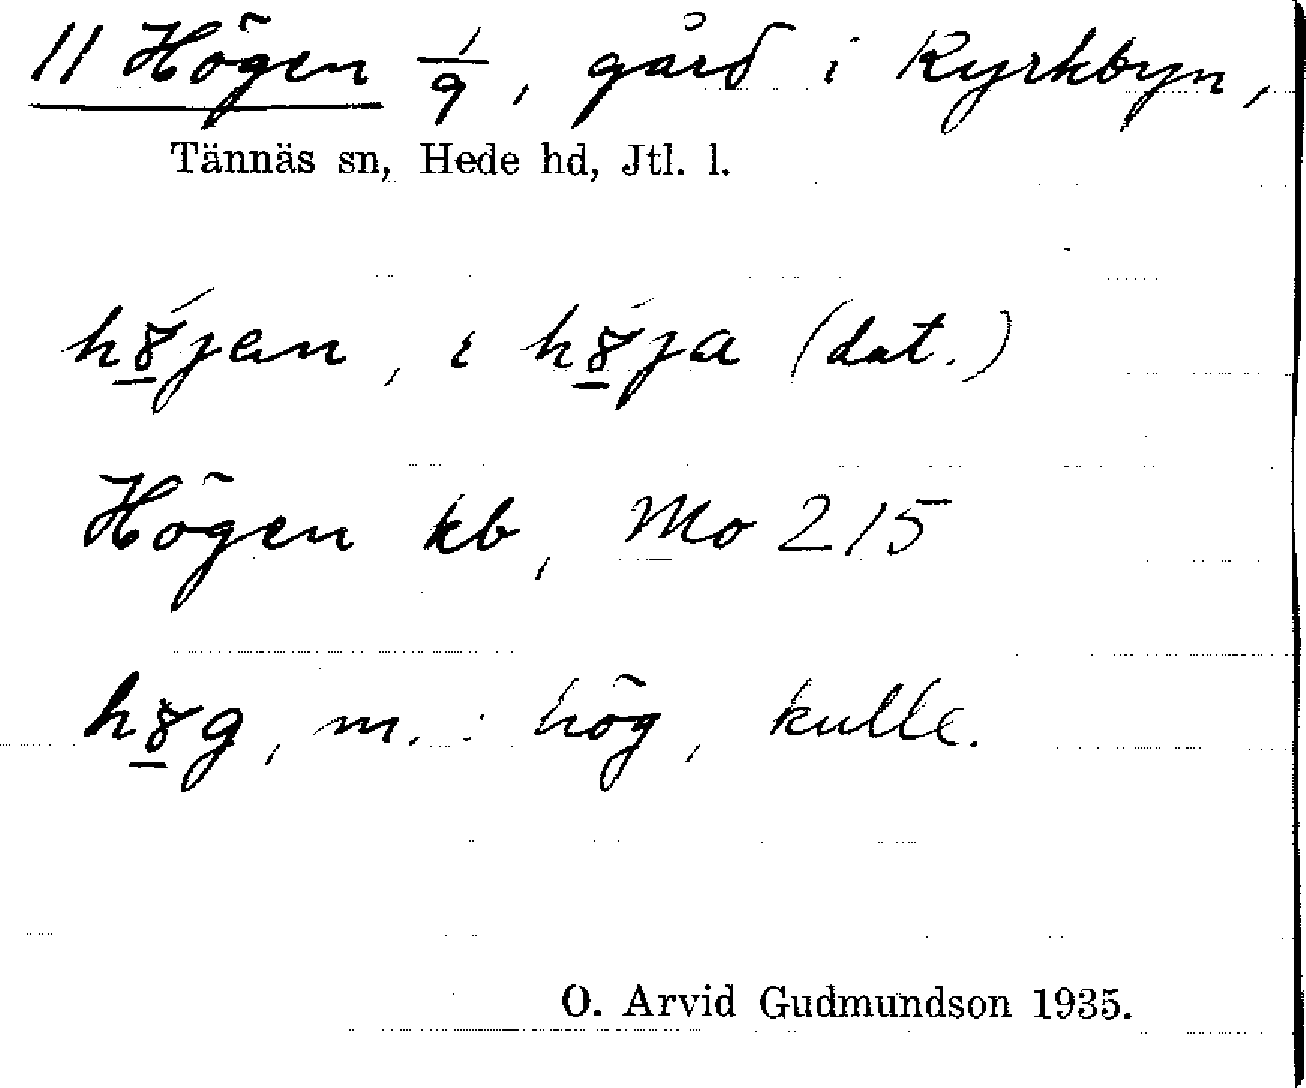 11 Högen 1/9, gård i Kyrkbyn,
Tännäs sn, Hede hd, Jtl. l.
hö̱́jan, i hö̱́ja (dat.)
Högen kb, Mo 215
hö̱g, m. : hög, kulle.
O. Arvid Gudmundson 1935.